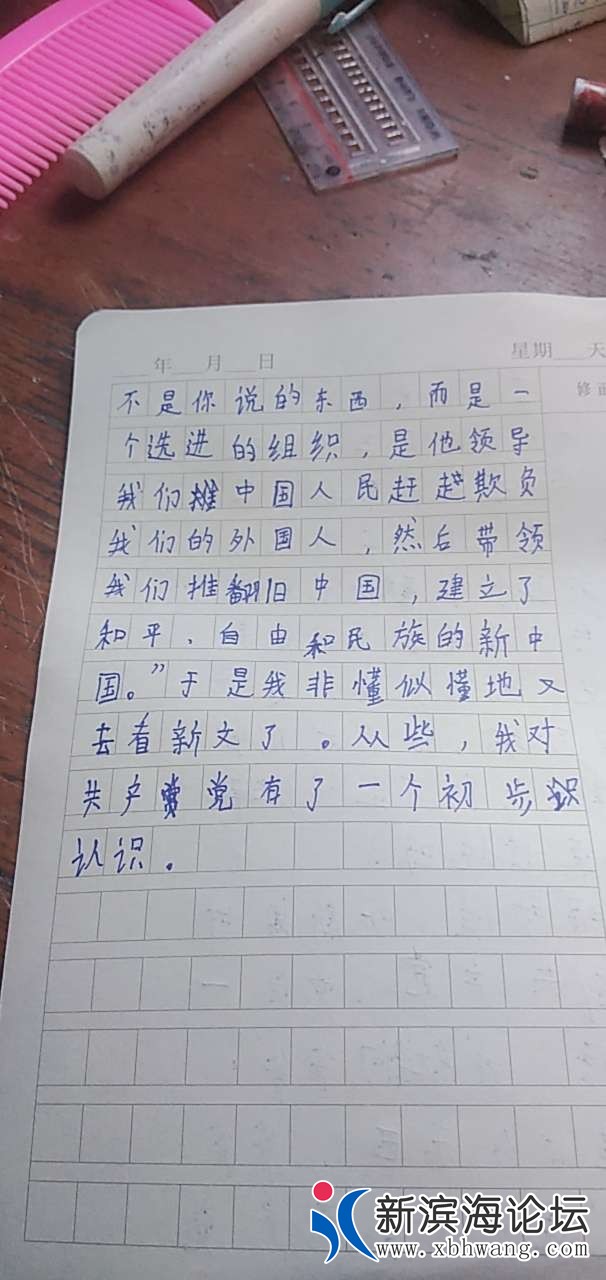 年 月 日
星期 天
修正
不是你说的东西，而是一
个选进的组织，是他领导
我们摊中国人民赶趟欺负
我们的外国人，然后带领
我们推翻旧中国，建立了
和平、自由和民族的新中
国。”于是我非懂似懂地又
去看新文了。从些，我对
共产党有了一个初步
认识。
新滨海论坛
www.xbhwang.com